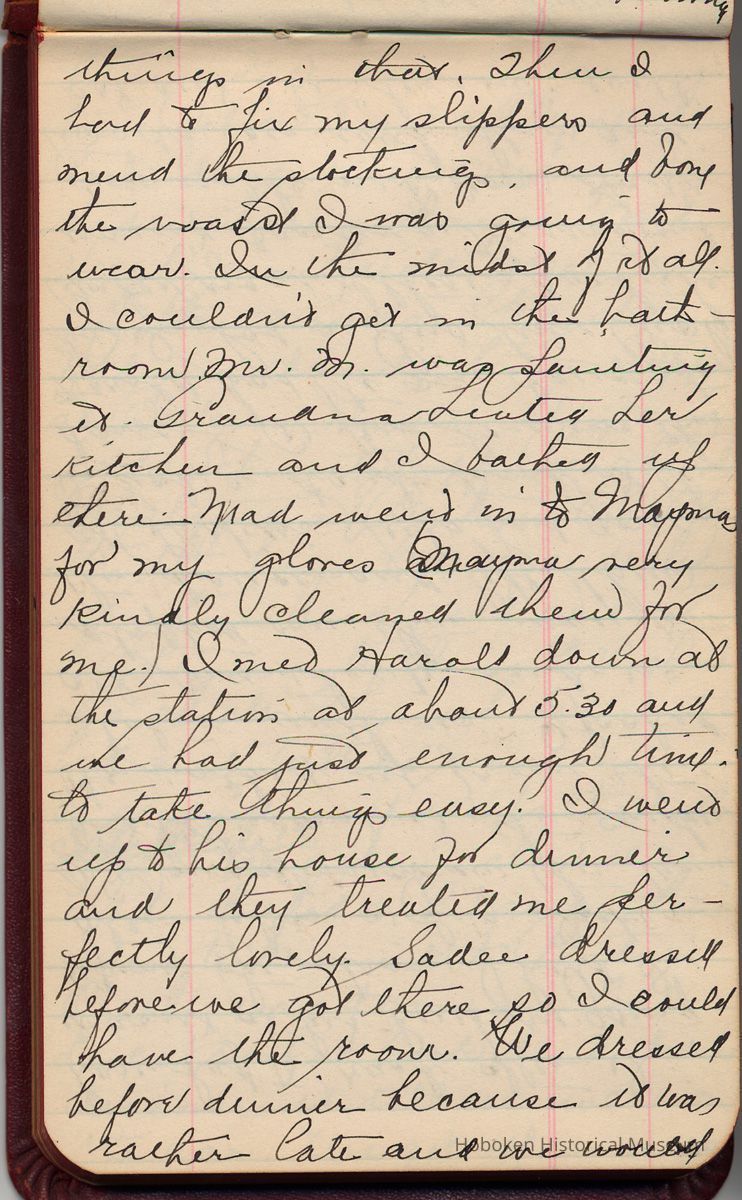 things in that. Then I
had to fix my slippers and
mend the stockings, and bone
the waist I was going to
wear. In the midst of it all.
I couldn't get in the bath-
room, Mr. M. was painting
it. Grandma heated her
kitchen and I bathed up
there. Mad went in to Mayma's
for my gloves (Mayma very
kindly cleaned them for
me.) I met Harold down at
the station at about 5.30 and
we had just enough time.
to take things easy. I went
up to his house for dinner
and they treated me per-
fectly lovely. Sadee dressed
before we got there so I could
have the room. We dressed
before dinner because it was
rather late and we would
Hoboken Historical Museum